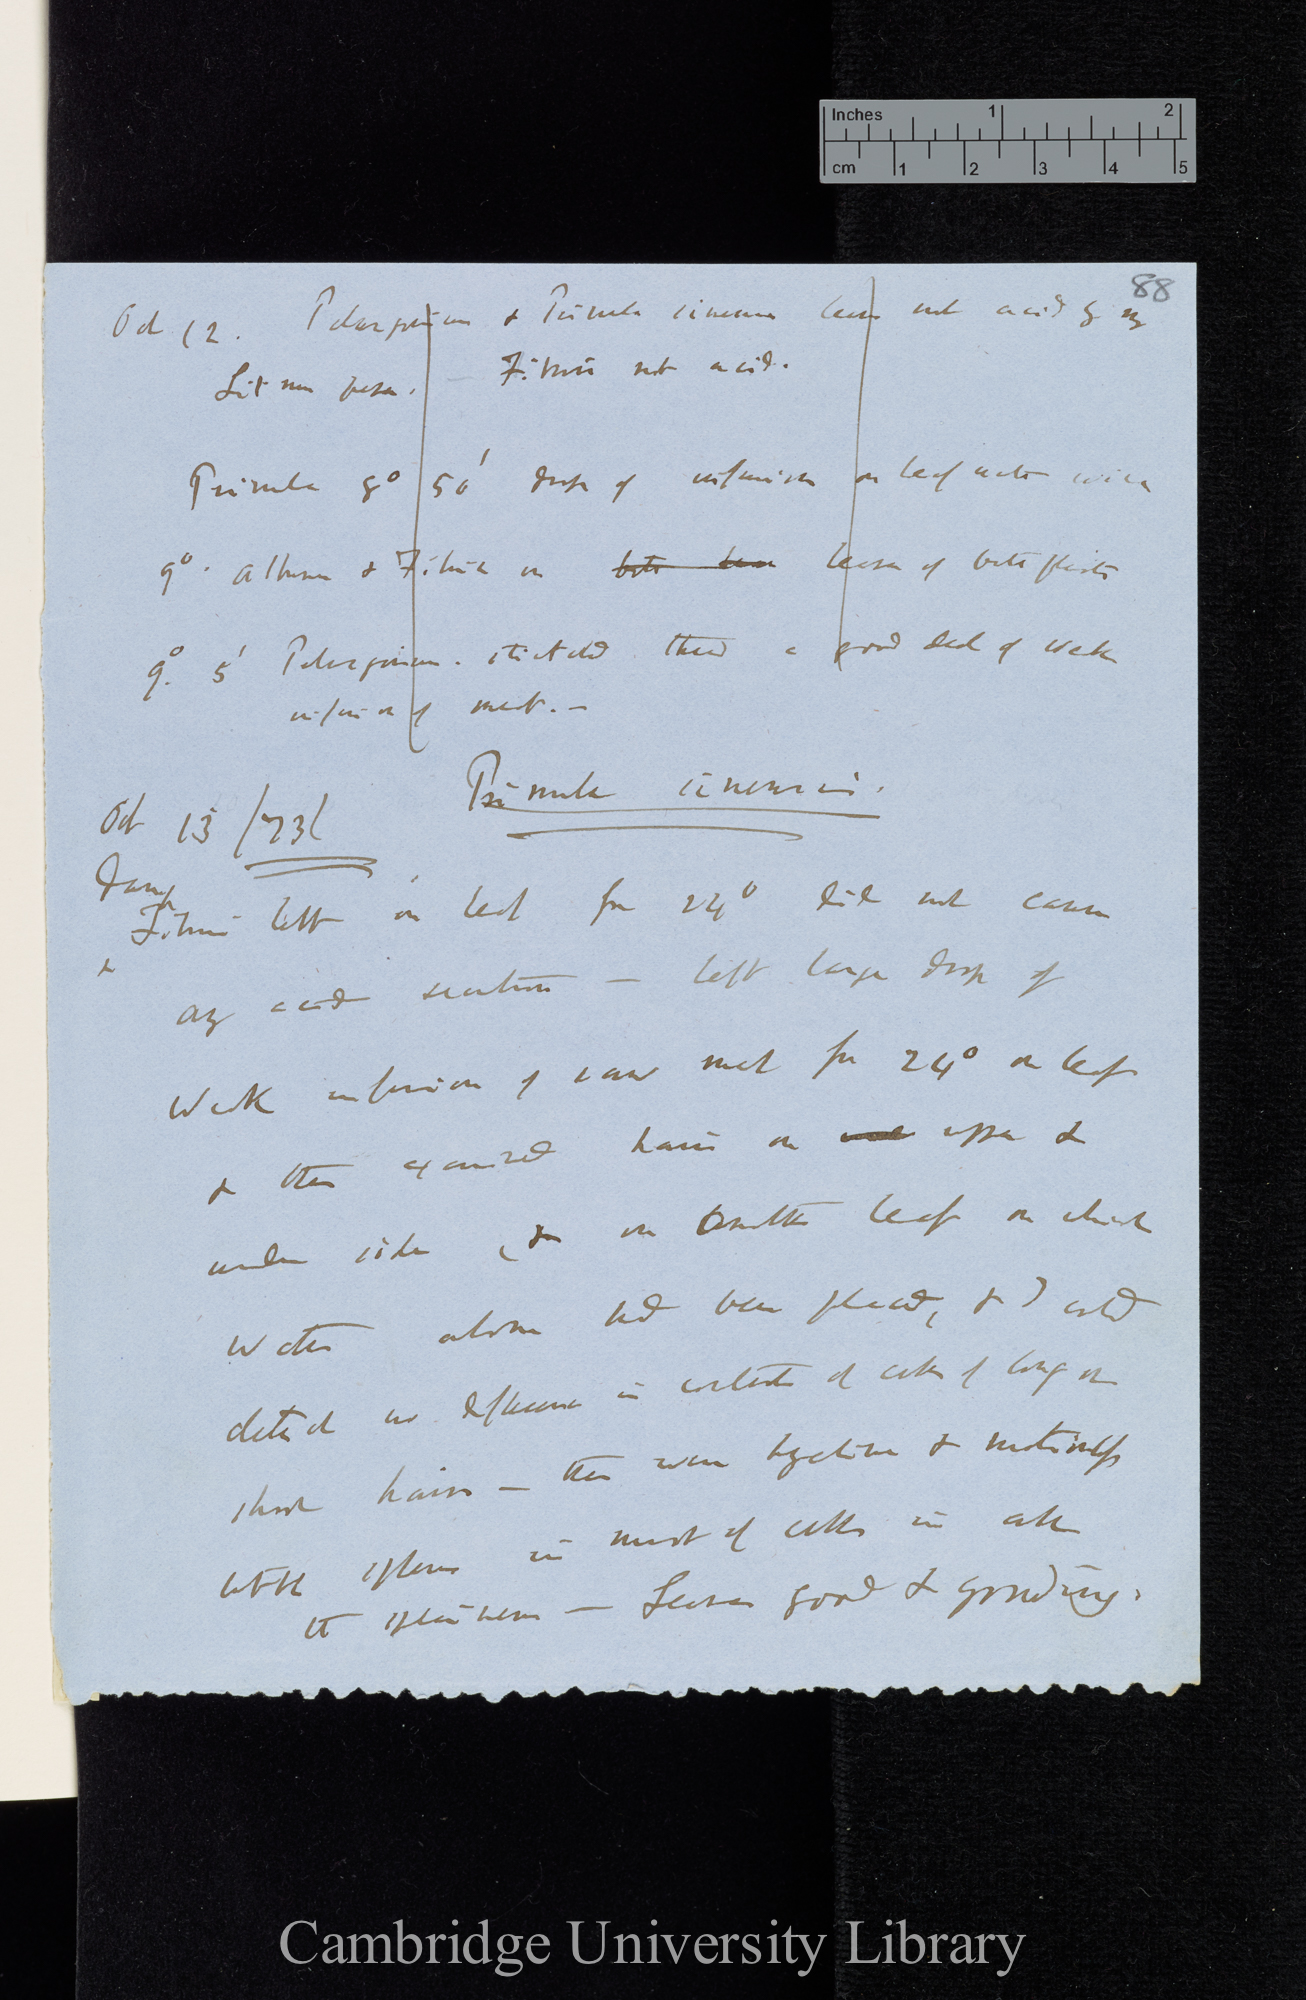 Inches 1 2
cm 1 2 3 4 5
88
Oct 12. Pelargonium & Primula sinensis leaves not acid by my
Litmus paper. — Fibrin not acid.
Primula 8° 50' drop of infusion on leaf water
9°. Albumen & Fibrin on both leaves leaves of both plants
9°. 5' Pelargonium. a good deal of weak
infusion of meat. —
Primula sinensis.
Oct 13 /73/
Damp
Fibrin left on leaf for 24° did not cause
&
any acid secretion — left large drop of
Weak infusion of raw meat for 24° on leaf
& then examined hairs on upper &
under side, & on another leaf on which
water alone had been placed, & I could
detect no difference in contents of cells of long or
short hairs — there were hyaline & motionless
little spheres in most of cells in all
the specimens — Leaves good & growing.
Cambridge University Library